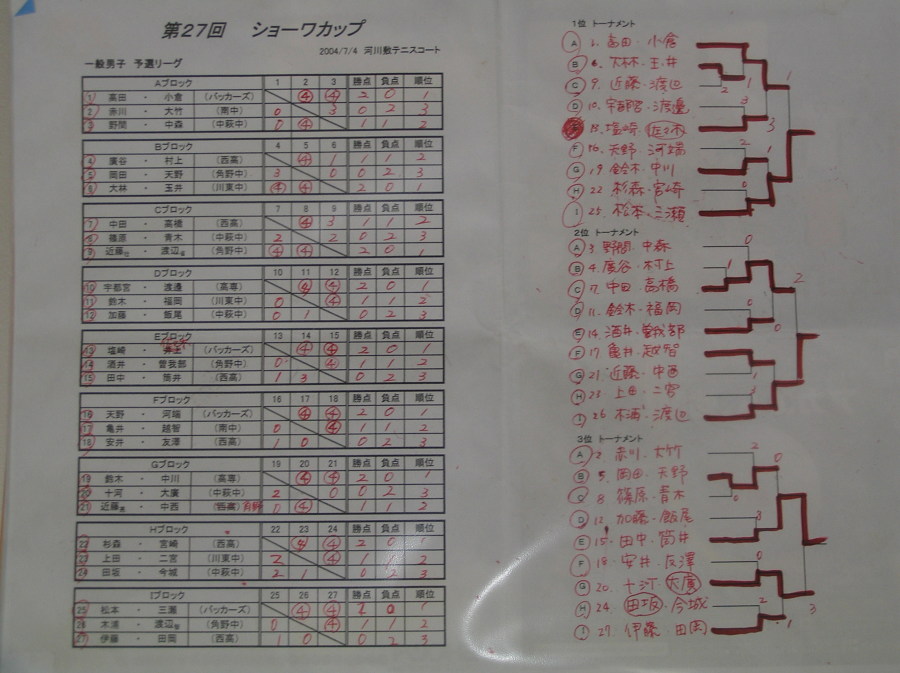 第27回 ショーワカップ
2004/7/4 河川敷テニスコート
一般男子 予選リーグ
Aブロック 1 2 3 勝点 負点 順位
1 高田 ・ 小倉 (パッカーズ) ④ ④ 2 0 1
2 赤川 ・ 大竹 (南中) 0 3 0 2 3
3 野間 ・ 中森 (中萩中) 0 ④ 1 1 2
Bブロック 4 5 6 勝点 負点 順位
4 廣谷 ・ 村上 (西高) ④ 1 1 1 2
5 岡田 ・ 天野 (角野中) 3 0 0 2 3
6 大林 ・ 玉井 (川東中) ④ ④ 2 0 1
Cブロック 7 8 9 勝点 負点 順位
7 中田 ・ 高橋 (西高) ④ 3 1 1 2
8 篠原 ・ 青木 (中萩中) 2 2 0 2 3
9 近藤 ・ 渡辺 (角野中) ④ ④ 2 0 1
Dブロック 10 11 12 勝点 負点 順位
10 宇都宮 ・ 渡邊 (高専) ④ ④ 2 0 1
11 鈴木 ・ 福岡 (川東中) 0 ④ 1 1 2
12 加藤 ・ 飯尾 (中萩中) 0 1 0 2 3
Eブロック 13 14 15 勝点 負点 順位
13 塩崎 ・ (パッカーズ) ④ ④ 2 0 1
14 酒井 ・ 曽我部 (角野中) 0 ④ 1 1 2
15 田中 ・ 筒井 (西高) 1 3 0 2 3
Fブロック 16 17 18 勝点 負点 順位
16 天野 ・ 河端 (パッカーズ) ④ ④ 2 0 1
17 亀井 ・ 越智 (南中) 0 ④ 1 1 2
18 安井 ・ 友澤 (西高) 1 0 0 2 3
Gブロック 19 20 21 勝点 負点 順位
19 鈴木 ・ 中川 (高専) ④ ④ 2 0 1
20 十河 ・ 大廣 (中萩中) 2 0 0 2 3
21 近藤 ・ 中西 (西高) 0 ④ 1 1 2
Hブロック 22 23 24 勝点 負点 順位
22 杉森 ・ 宮崎 (西高) ④ ④ 2 0 1
23 上田 ・ 二宮 (川東中) 2 ④ 1 1 2
24 田坂 ・ 今城 (中萩中) 2 1 0 2 3
Iブロック 25 26 27 勝点 負点 順位
25 松本 ・ 三瀬 (パッカーズ) ④ ④ 2 0 1
26 木浦 ・ 渡辺 (角野中) 0 ④ 1 1 2
27 伊藤 ・ 田岡 (西高) 1 0 0 2 3
1位 トーナメント
A 1. 高田・小倉
B 6. 大林・玉井
C 9. 近藤・渡辺
D 10. 宇都宮・渡邊
13. 塩崎・佐々木
F 16. 天野・河端
G 19 鈴木・中川
H 22 杉森・宮崎
I 25. 松本・三瀬
2位 トーナメント
A 3. 野間・中森
B 4. 廣谷・村上
C 7 中田・高橋
D 11. 鈴木・福岡
E 14. 酒井・曽我部
F 17 亀井・越智
G 21 近藤・中西
H 23 上田・二宮
I 26 木浦・渡辺
3位 トーナメント
A 2. 赤川・大竹
B 5. 岡田・天野
C 8 篠原・青木
D 12 加藤・飯尾
E 15 田中・筒井
F 18. 安井・友澤
G 20. 十河・大廣
H 24. 田坂・今城
I 27. 伊藤・田岡